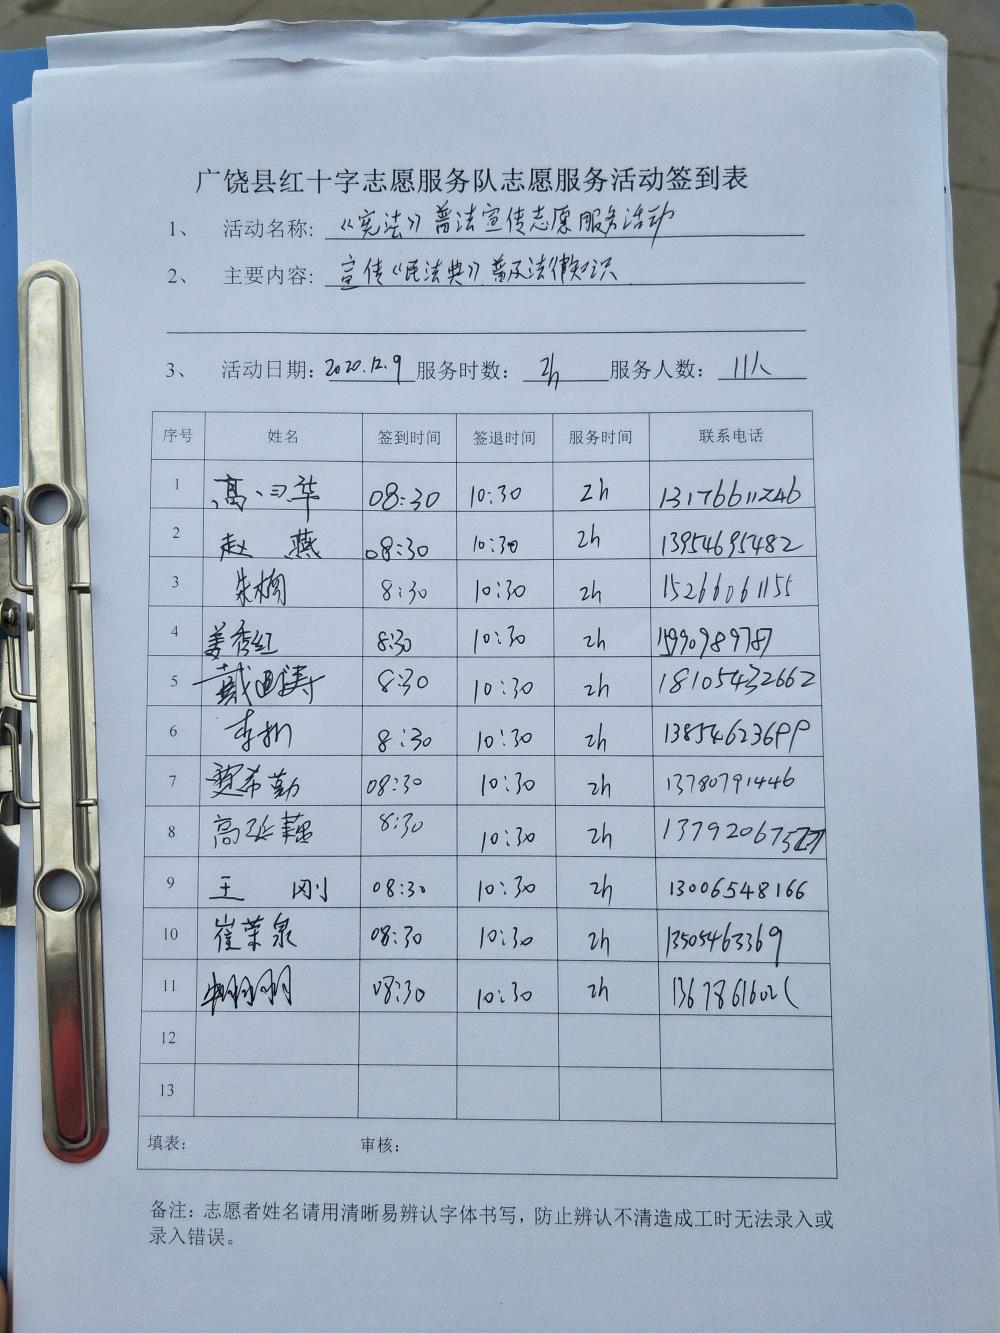 广饶县红十字志愿服务队志愿服务活动签到表
1、 活动名称: 《宪法》普法宣传志愿服务活动
2、 主要内容: 宣传《民法典》普及法律知识
3、 活动日期: 2020.12.9 服务时数: 2h 服务人数: 11人
序号 姓名 签到时间 签退时间 服务时间 联系电话
1 08:30 10:30 2h 13176611246
2 赵 燕 08:30 10:30 2h 13954695482
3 8:30 10:30 2h 15266061155
4 姜秀红 8:30 10:30 2h
5 8:30 10:30 2h 18105432662
6 8:30 10:30 2h 13854623699
7 08:30 10:30 2h 13780791446
8 8:30 10:30 2h
9 王 刚 08:30 10:30 2h 13006548166
10 崔荣泉 08:30 10:30 2h 13505463369
11 08:30 10:30 2h
12
13
填表: 审核:
备注: 志愿者姓名请用清晰易辨认字体书写, 防止辨认不清造成工时无法录入或
录入错误。